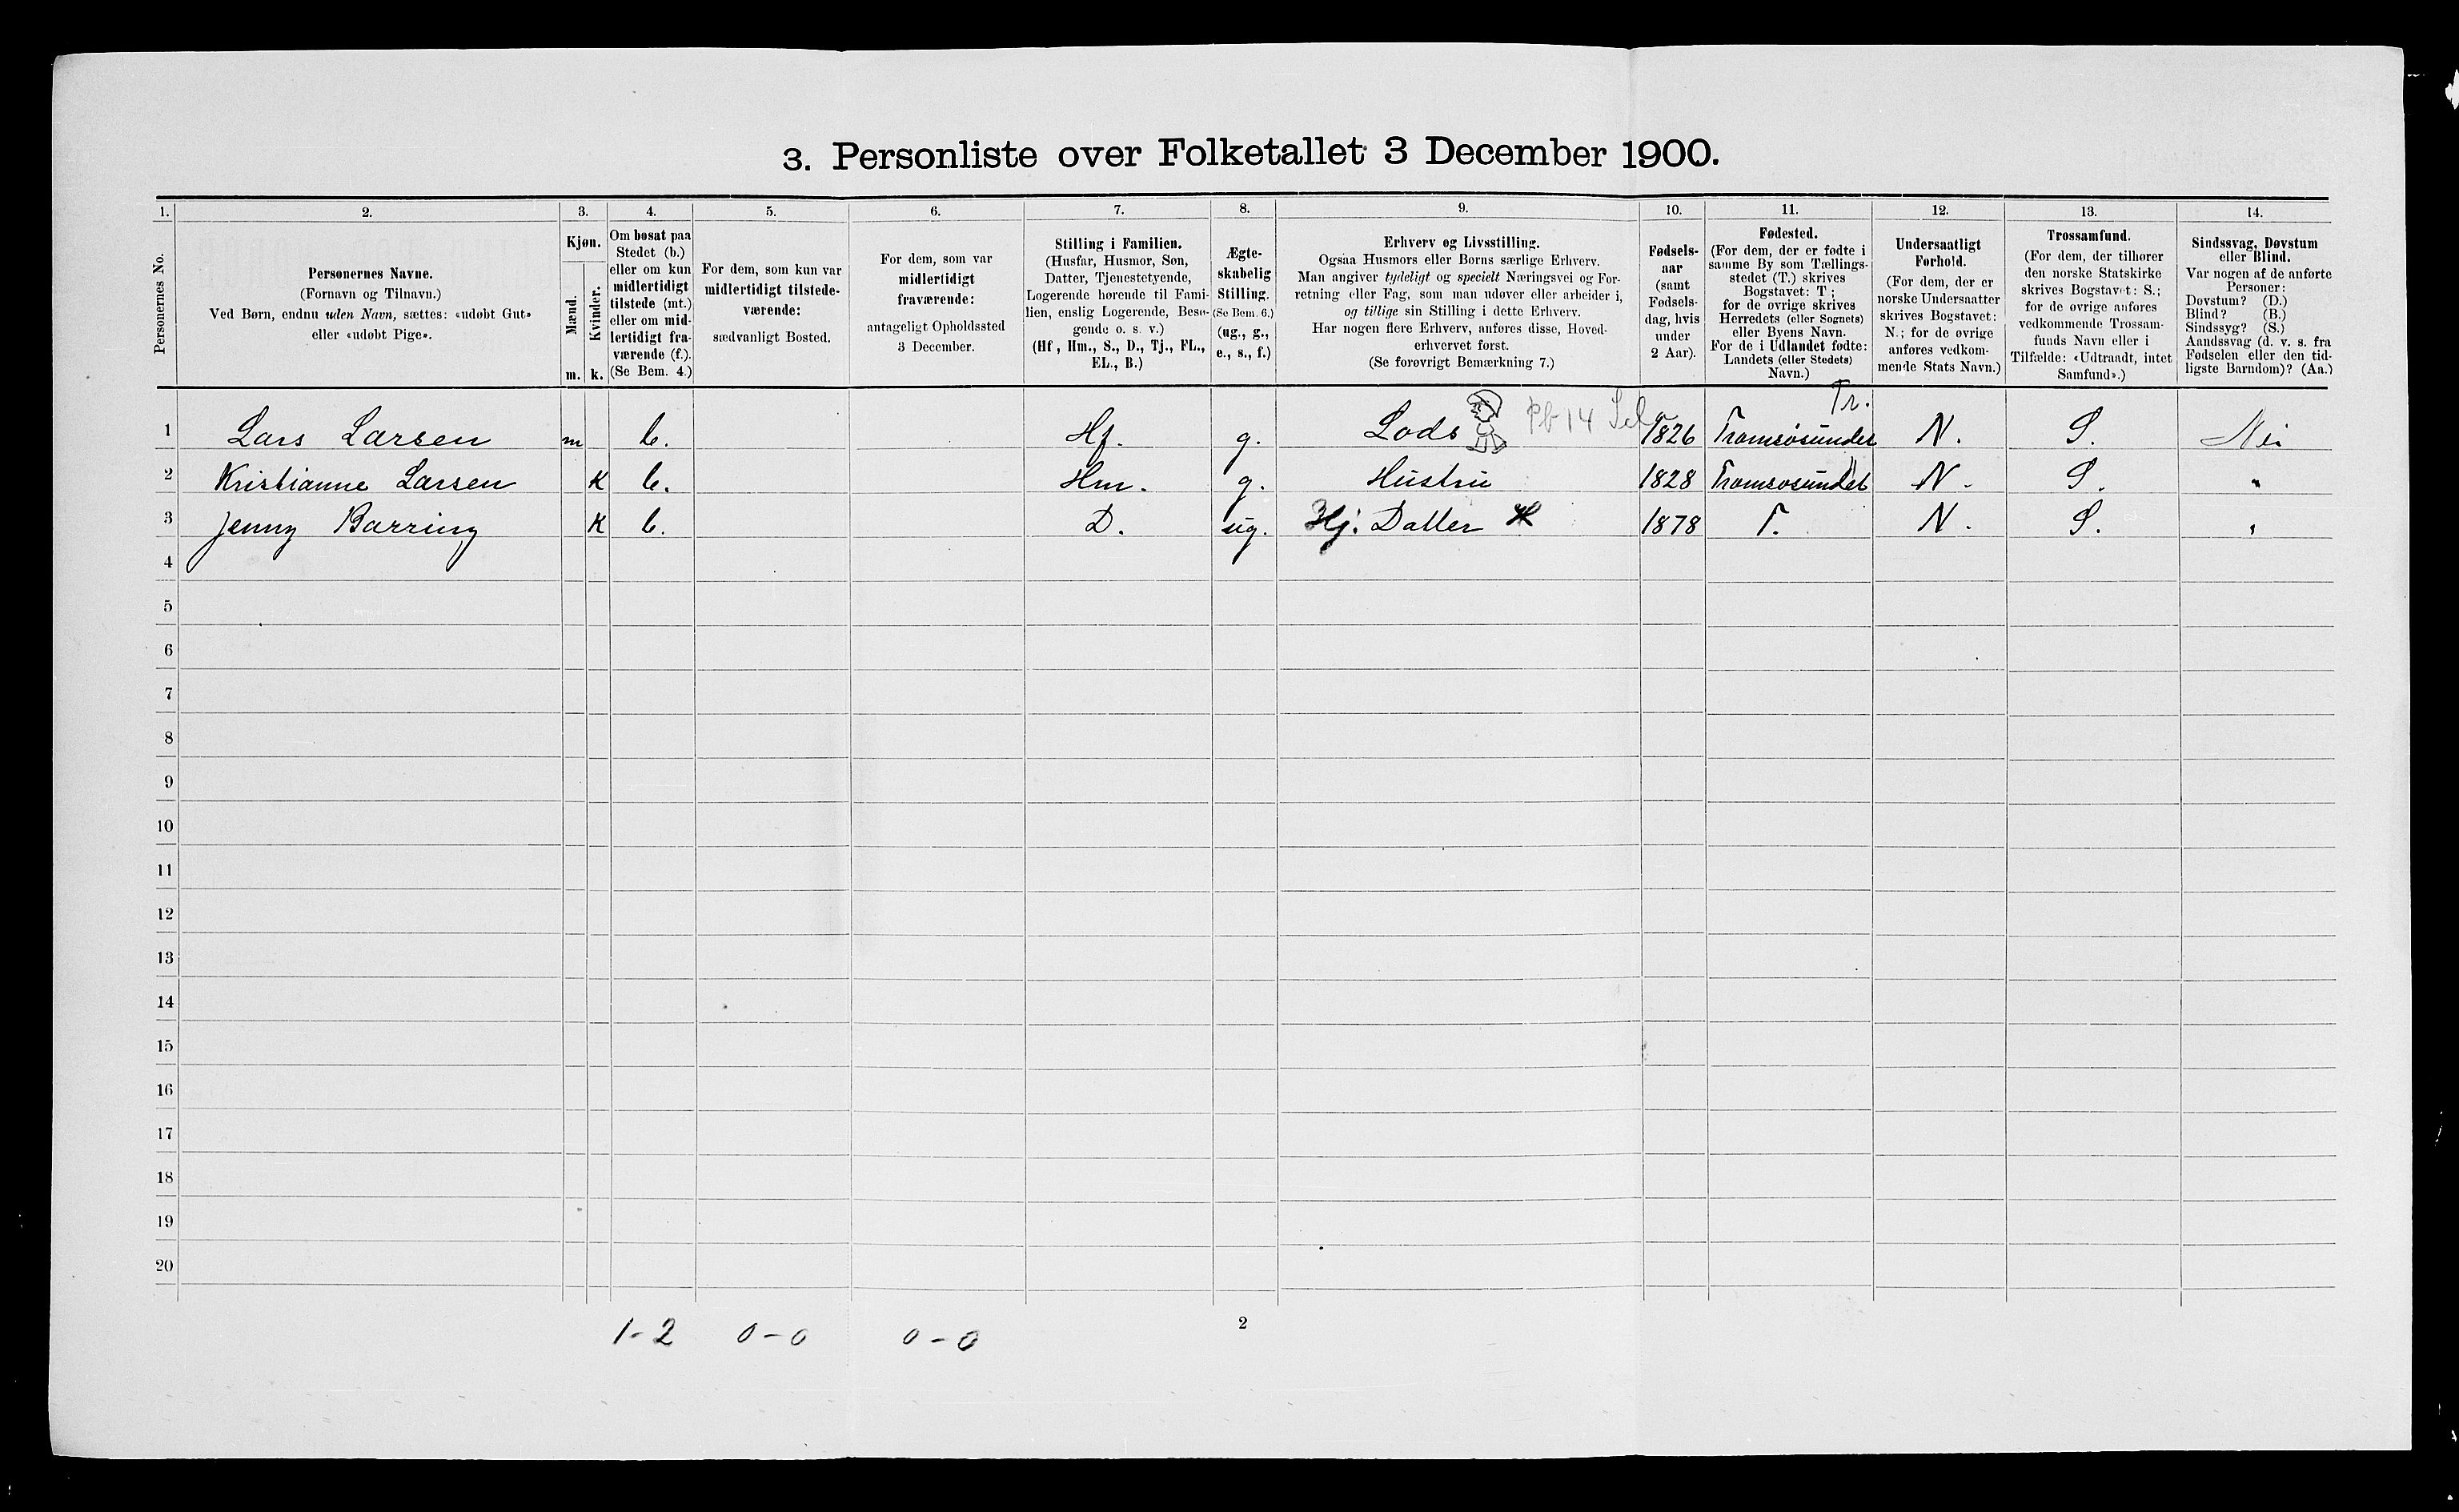 3. Personliste over Folketallet 3 December 1900.
1. 2. 3. 4. 5. 6. 7. 8. 9. 10. 11. 12. 13. 14.
Personernes No.
Personernes Navne.
(Fornavn og Tilnavn.)
Ved Børn, endnu uden Navn, sættes: «udøbt Gut»
eller «udøbt Pige».
Kjøn.
Mænd.
m.
Kvinder.
k.
Om bosat paa
Stedet (b.)
eller om kun
midlertidigt
tilstede (mt.)
eller om mid-
lertidigt fra-
værende (f.).
(Se Bem. 4.)
For dem, som kun var
midlertidigt tilstede-
værende:
sædvanligt Bosted.
For dem, som var
midlertidigt
fraværende:
antageligt Opholdssted
3 December.
Stilling i Familien.
(Husfar, Husmor, Søn,
Datter, Tjenestetyende,
Logerende hørende til Fami-
lien, enslig Logerende, Besø-
gende o. s. v.)
(Hf., Hm., S., D., Tj., FL.,
EL., B.)
Ægte-
skabelig
Stilling.
(Se Bem. 6.)
(ug., g.,
e., s., f.)
Erhverv og Livsstilling.
Ogsaa Husmors eller Børns særlige Erhverv.
Man angiver tydeligt og specielt Næringsvei og For-
retning eller Fag, som man udøver eller arbeider i,
og tillige sin Stilling i dette Erhverv.
Har nogen flere Erhverv, anføres disse, Hoved-
erhvervet først.
(Se forøvrigt Bemærkning 7.)
Fødsels-
aar
(samt
Fødsels-
dag, hvis
under
2 Aar).
Fødested.
(For dem, der er fødte i
samme By som Tællings-
stedet (T.) skrives
Bogstavet: T ;
for de øvrige skrives
Herredets (eller Sognets)
eller Byens Navn.
For de i Udlandet fødte:
Landets (eller Stedets)
Navn.)
Undersaatligt
Forhold.
(For dem, der er
norske Undersaatter
skrives Bogstavet:
N.; for de øvrige
anføres vedkom-
mende Stats Navn.)
Trossamfund.
(For dem, der tilhører
den norske Statskirke
skrives Bogstavet: S.;
for de øvrige anføres
vedkommende Trossam-
funds Navn eller i
Tilfælde: «Udtraadt, intet
Samfund».)
Sindssvag, Døvstum
eller Blind.
Var nogen af de anførte
Personer:
Døvstum? (D.)
Blind? (B.)
Sindssyg? (S.)
Aandssvag (d. v. s. fra
Fødselen eller den tid-
ligste Barndom)? (Aa.)
Tr.
1 Lars Larsen m b. Hf. g. Lods Pb 14 1826 Tromsøsundet N. S. Nei
2 Kristianne Larsen K b. Hm. g. Hustru 1828 Tromsøsundet N. S. "
3 Jenny Barring K b. D. ug. Hj. Datter 1878 T. N. S. "
4
5
6
7
8
9
10
11
12
13
14
15
16
17
18
19
20
1-2 0-0 0-0 2